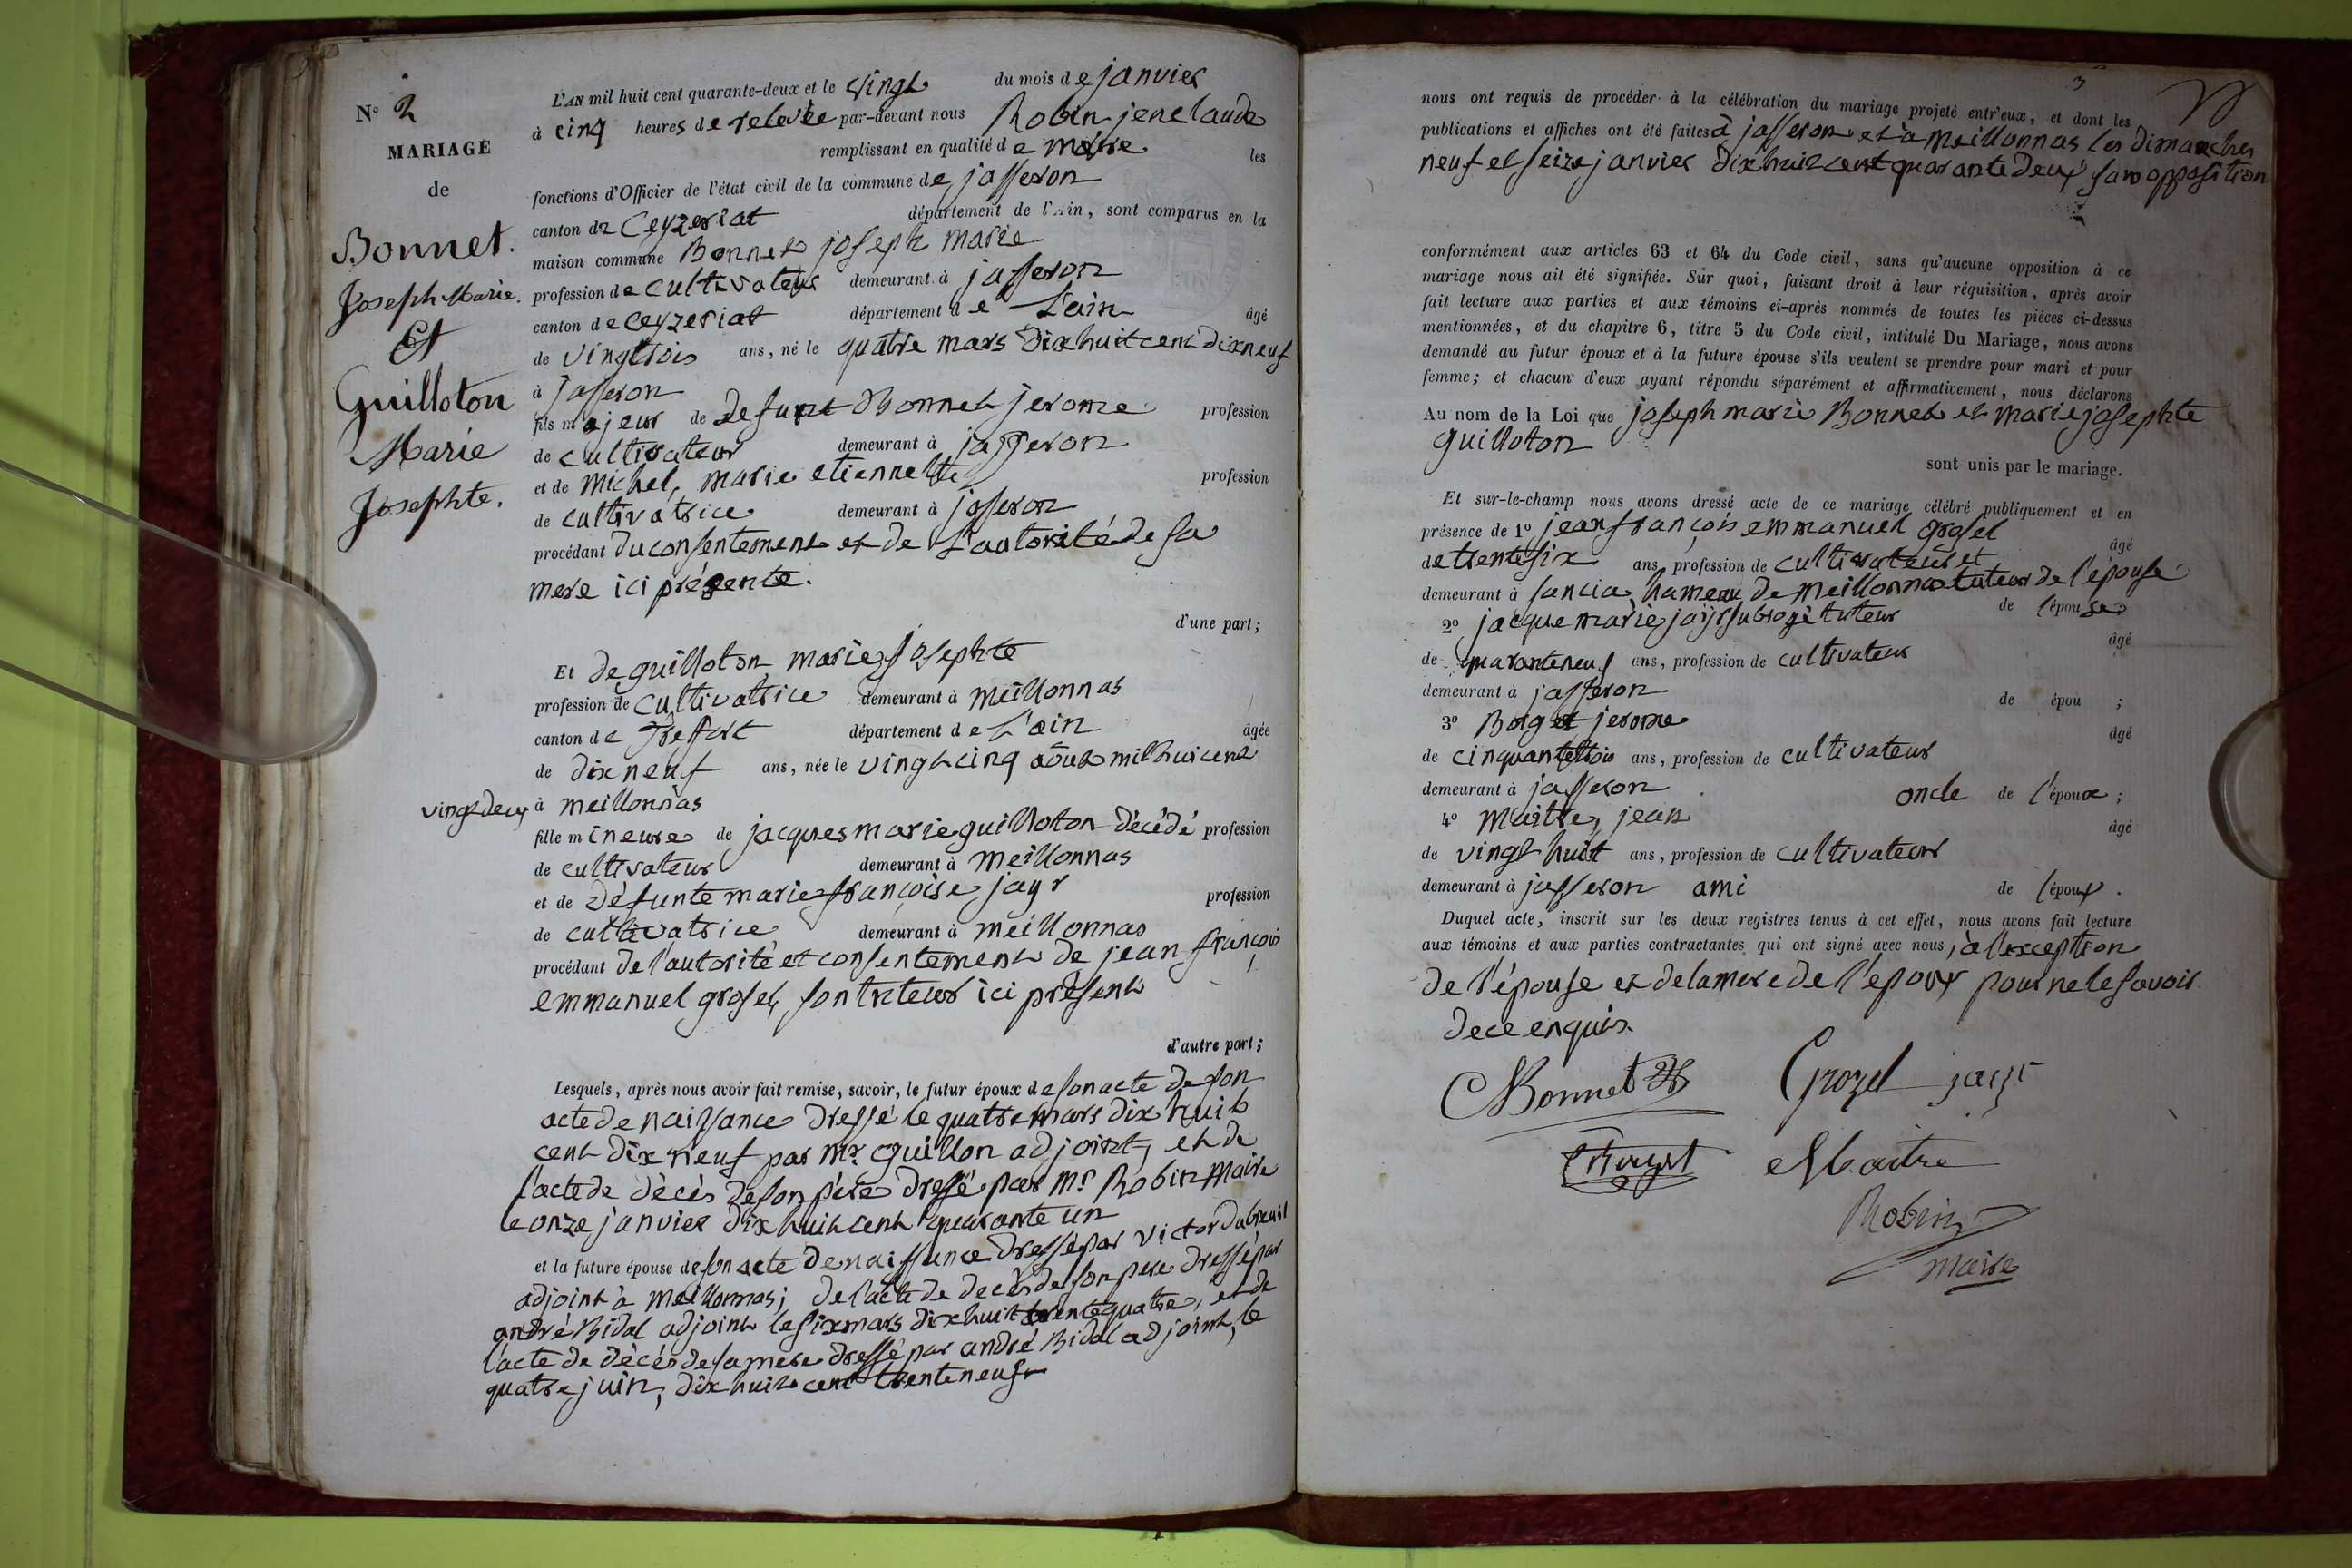 N° 2
MARIAGE
de
Bonnet.
Joseph Marie.
Et
Guilloton
Marie
Josephte.
L'AN mil huit cent quarante-deux et le vingt du mois de janvier
à cinq heures de relevée par-devant nous Robin jene laude
remplissant en qualité de maire les
fonctions d'Officier de l'état civil de la commune de jasseron
canton de Ceyzeriat département de l'Ain, sont comparus en la
maison commune Bonnet joseph marie
profession de cultivateur demeurant à jasseron
canton de ceyzeriat département de L'ain âgé
de vingttrois ans, né le quatre mars dixhuitcent dixneuf
à jasseron
fils majeur de defunt Bonnet jerome profession
de cultivateur demeurant à jasseron
et de michel, marie etiennette profession
de cultivatrice demeurant à jasseron
procédant du consentement et de L'autorité de sa
mere ici présente.
d'une part;
Et de guilloton marie josephte
profession de cultivatrice demeurant à meillonnas
canton de Treffort département de L'ain âgée
de dixneuf ans, née le vingt cinq août mil huit cent
vingtdeux à meillonnas
fille mineure de jacques marie guilloton décédé profession
de cultivateur demeurant à meillonnas
et de défunte marie françoise jayr profession
de cultivatrice demeurant à meillonnas
procédant de l'autorité et consentement de jean françois
emmanuel grosel, son tuteur ici présent
d'autre part;
Lesquels, après nous avoir fait remise, savoir, le futur époux de son acte de son
acte de naissance dressé le quatre mars dix huit
cent dix neuf par mr. Guillon adjoint, et de
l'acte de décès de son père dressé par mr Robin maire
le onze janvier dix huit cent quarante un
et la future épouse de son acte de naissance dressé par victor dubreuil
adjoint à meillonnas; de l'acte de decès de son pere dressé par
andré Bidal adjoint le six mars dixhuit trentequatre, et de
l'acte de décès de sa mere dressé par andré Bidal adjoint, le
quatre juin, dix huit cent trente neuf
3
nous ont requis de procéder à la célébration du mariage projeté entr'eux, et dont les
publications et affiches ont été faites à jasseron et à meillonnas les dimanches
neuf et seize janvier dixhuit cent quarante deux sans opposition
conformément aux articles 63 et 64 du Code civil, sans qu'aucune opposition à ce
mariage nous ait été signifiée. Sur quoi, faisant droit à leur réquisition, après avoir
fait lecture aux parties et aux témoins ci-après nommés de toutes les pièces ci-dessus
mentionnées, et du chapitre 6, titre 5 du Code civil, intitulé Du Mariage, nous avons
demandé au futur époux et à la future épouse s'ils veulent se prendre pour mari et pour
femme; et chacun d'eux ayant répondu séparément et affirmativement, nous déclarons
Au nom de la Loi que joseph marie Bonnet et marie josephte
guilloton
sont unis par le mariage.
Et sur-le-champ nous avons dressé acte de ce mariage célébré publiquement et en
présence de 1° jean françois emmanuel grosel âgé
de trentesix ans, profession de cultivateur et
demeurant à sancia, hameau de meillonnas tuteur de l'épouse
2° jacque marie jayr subrogé tuteur de l'épouse
de quaranteneuf ans, profession de cultivateur âgé
demeurant à jasseron de épou ;
3° Borget jerome âgé
de cinquantetrois ans, profession de cultivateur
demeurant à jasseron oncle de l'époux ;
4° Maitre, jean âgé
de vingt huit ans, profession de cultivateur
demeurant à jasseron ami de l'époux.
Duquel acte, inscrit sur les deux registres tenus à cet effet, nous avons fait lecture
aux témoins et aux parties contractantes qui ont signé avec nous, à l'exception
de l'épouse et de la mere de l'epoux pour ne le savoir
de ce enquis.
Bonnet Grozel jayr
Maitre
Robin
maire